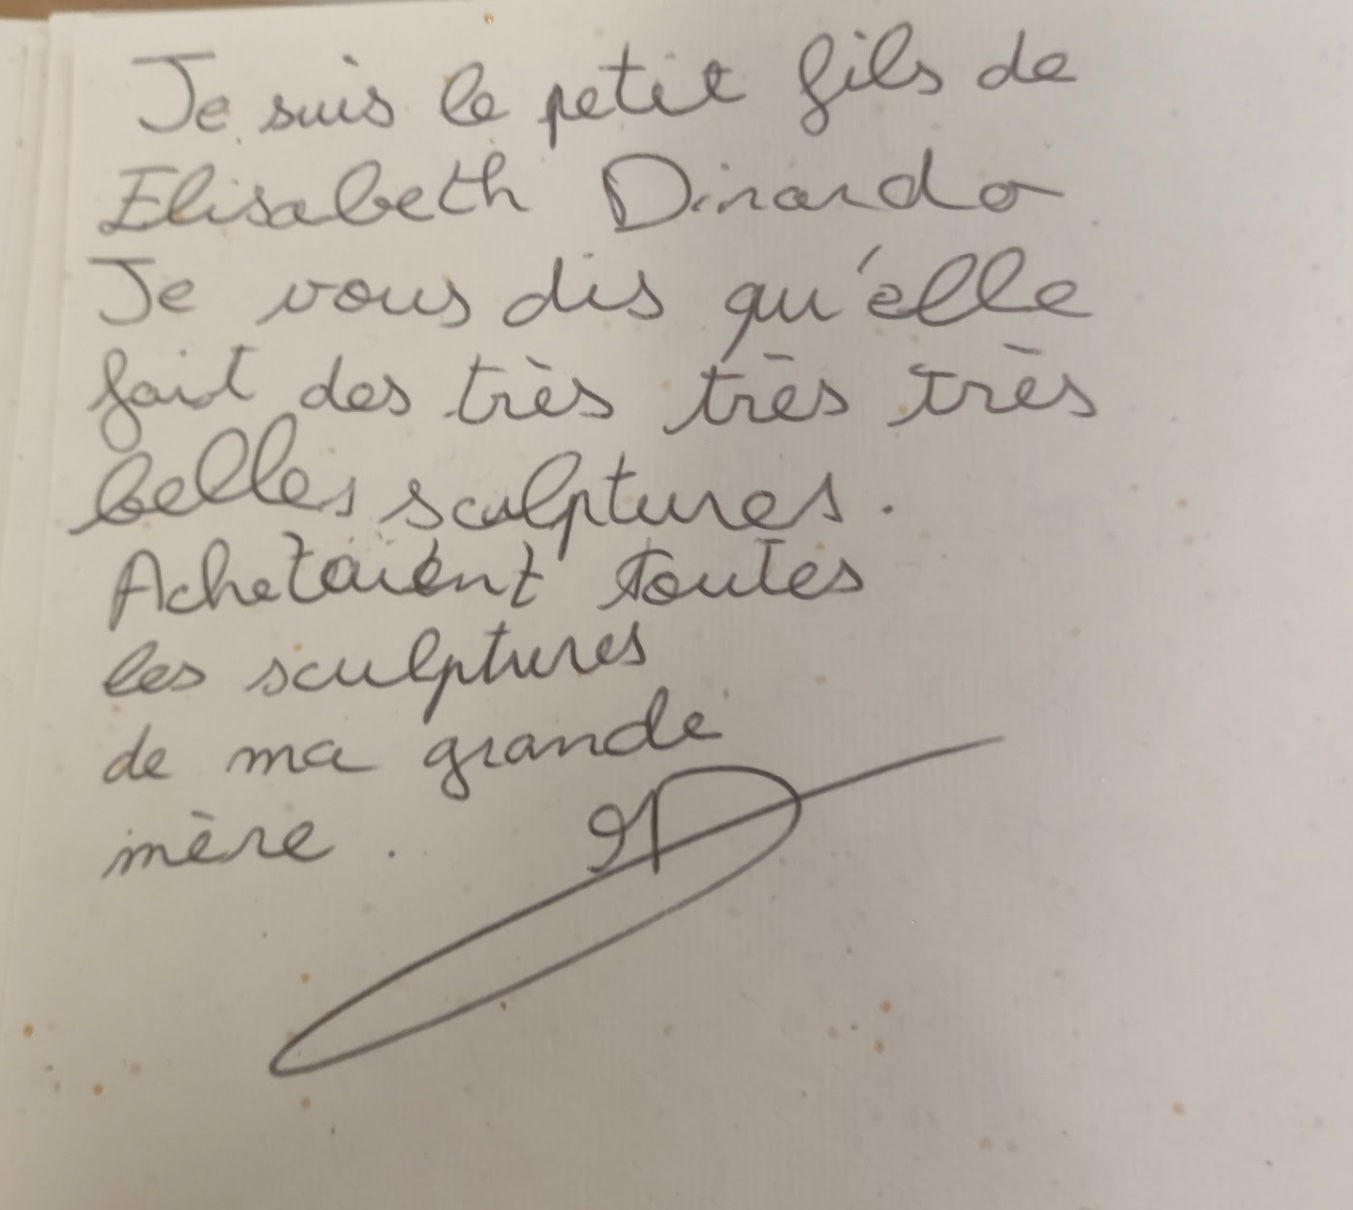 Je suis le petit fils de
Elisabeth Dinardo
Je vous dis qu'elle
fait des très très très
belles sculptures.
Achetaient toutes
les sculptures
de ma grande
mère.